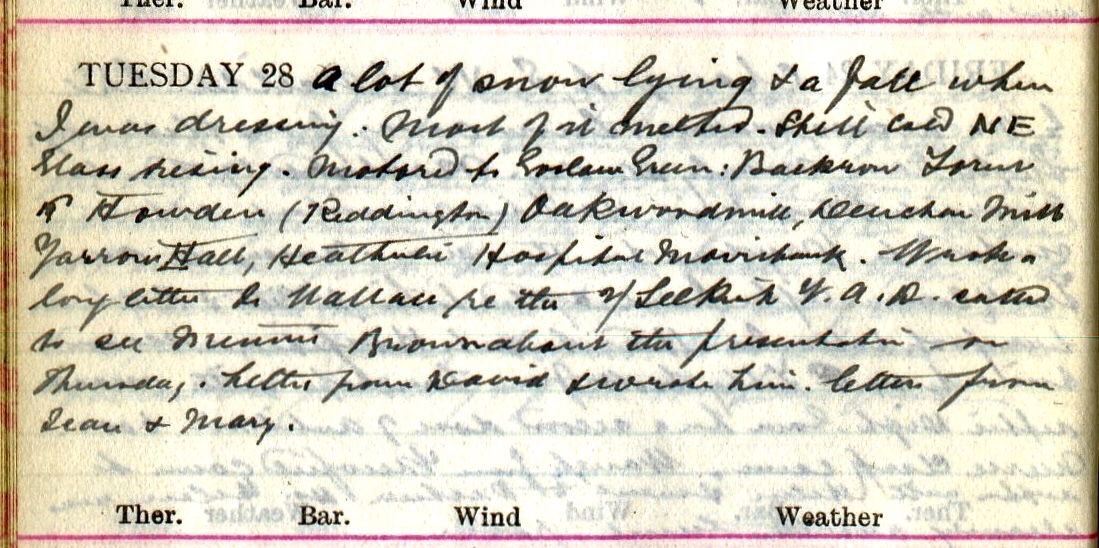 Ther. Bar. Wind Weather
TUESDAY 28 A lot of snow lying & a fall when
I was dressing. Most of it melted. Still cold NE
Glass rising. Motored to Green: Backrow Tower
Howden (Reddington) Oakwoodmill, Deuchar Mill
Yarrow Hall, Heatherlie Hospital Moorbank. Wrote a
long letter to Wallace re the Selkirk V.A.D. called
to see Brown about the presentation on
Thursday. Letter from David & wrote him. Letters from
Jean & Mary.
Ther. Bar. Wind Weather